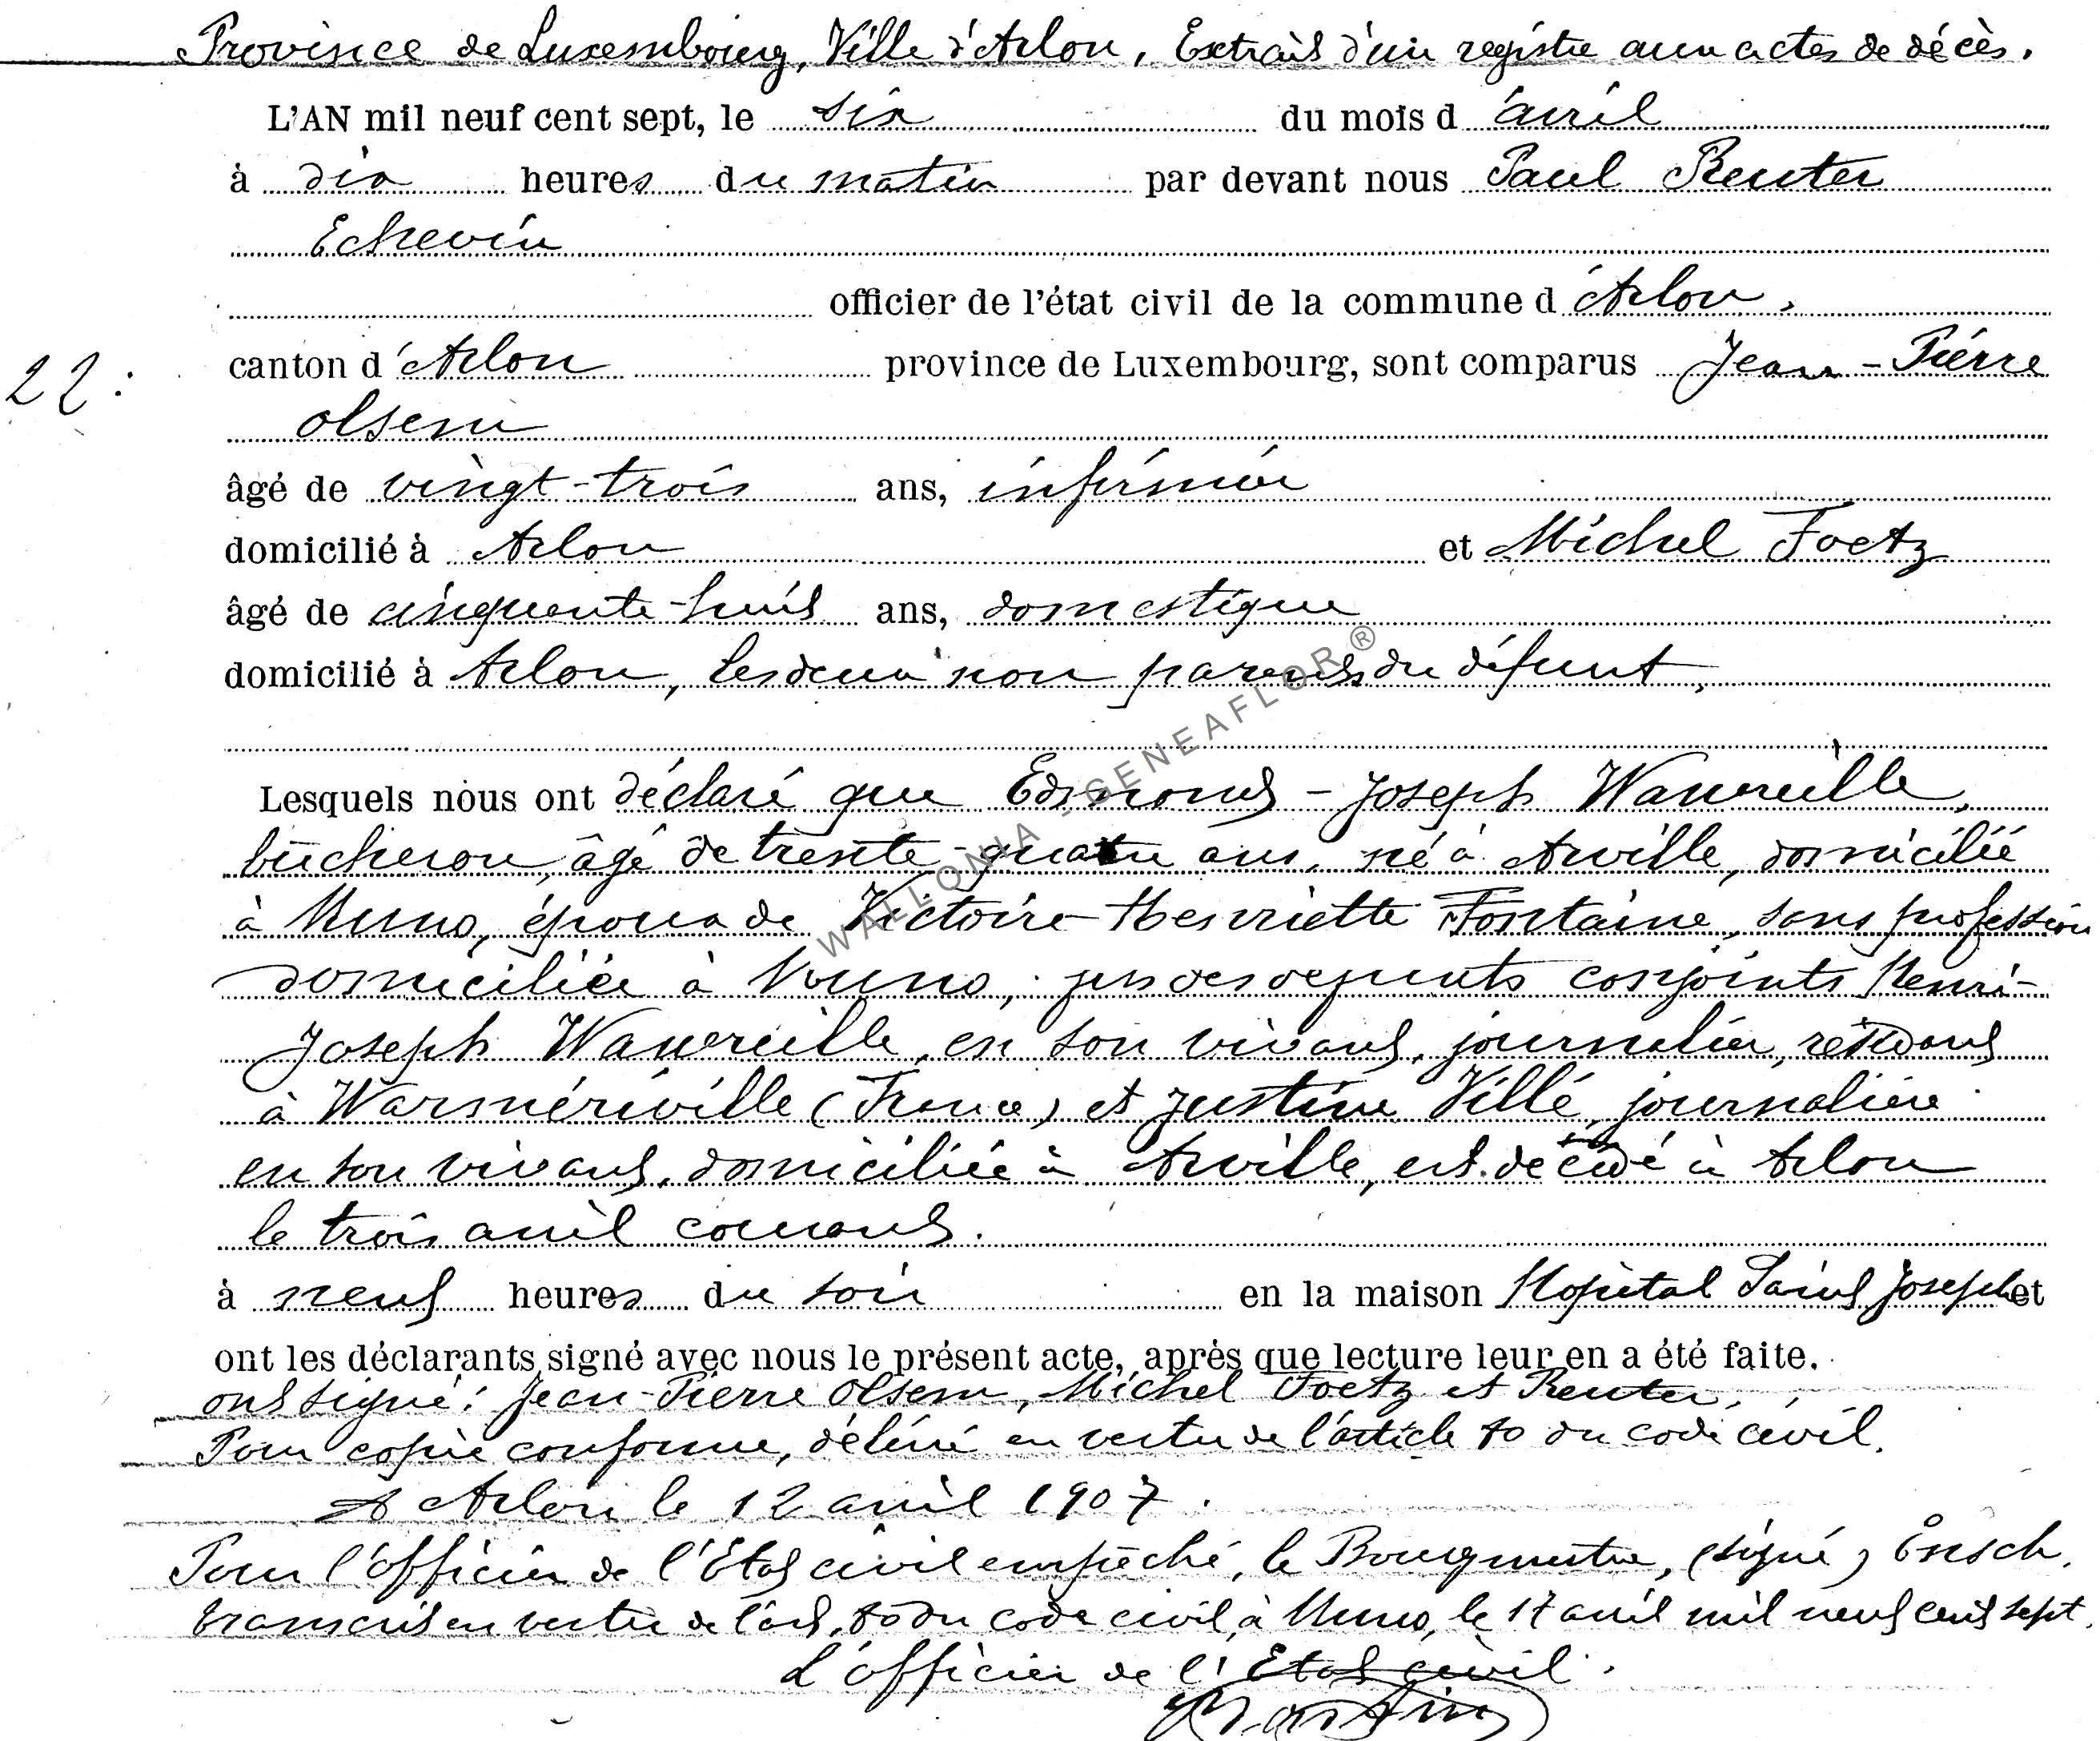 Province de Luxembourg, Ville d'Arlon, Extrait d'un registre aux actes de décès.
L'AN mil neuf cent sept, le six du mois d'avril
à dix heures du matin par devant nous Paul Reuter
Echevin
officier de l'état civil de la commune d'Arlon,
22: canton d'Arlon province de Luxembourg, sont comparus Jean-Pierre
Olsem
âgé de vingt-trois ans, infirmier
domicilié à Arlon et Michel Foetz
âgé de cinquante-huit ans, domestique
domicilié à Arlon, les deux non parents du défunt,
WALLONIA - GENEAFLOR ®
Lesquels nous ont déclaré que Edmond-Joseph Waureille,
bûcheron, âgé de trente-quatre ans, né à Arville, domicilié
à Muno, époux de Victoire-Henriette Fontaine, sans profession
domiciliée à Muno, fils des défunts conjoints Henri-
Joseph Waureille, en son vivant, journalier, résidant
à Warmériville (France) et Justine Villé, journalière
en son vivant, domiciliée à Arville, est décédé à Arlon
le trois avril courant.
à neuf heures du soir en la maison Hopital Saint Joseph et
ont les déclarants signé avec nous le présent acte, après que lecture leur en a été faite.
ont signé: Jean-Pierre Olsem, Michel Foetz et Reuter,
Pour copie conforme, délivré en vertu de l'article 80 du code civil.
A Arlon le 12 avril 1907.
Pour l'officier de l'Etat civil empêché, le Bourgmestre, (signé) Ensch.
transcrit en vertu de l'art. 80 du code civil, à Muno, le 17 avril mil neuf cent sept.
L'officier de l'Etat civil.